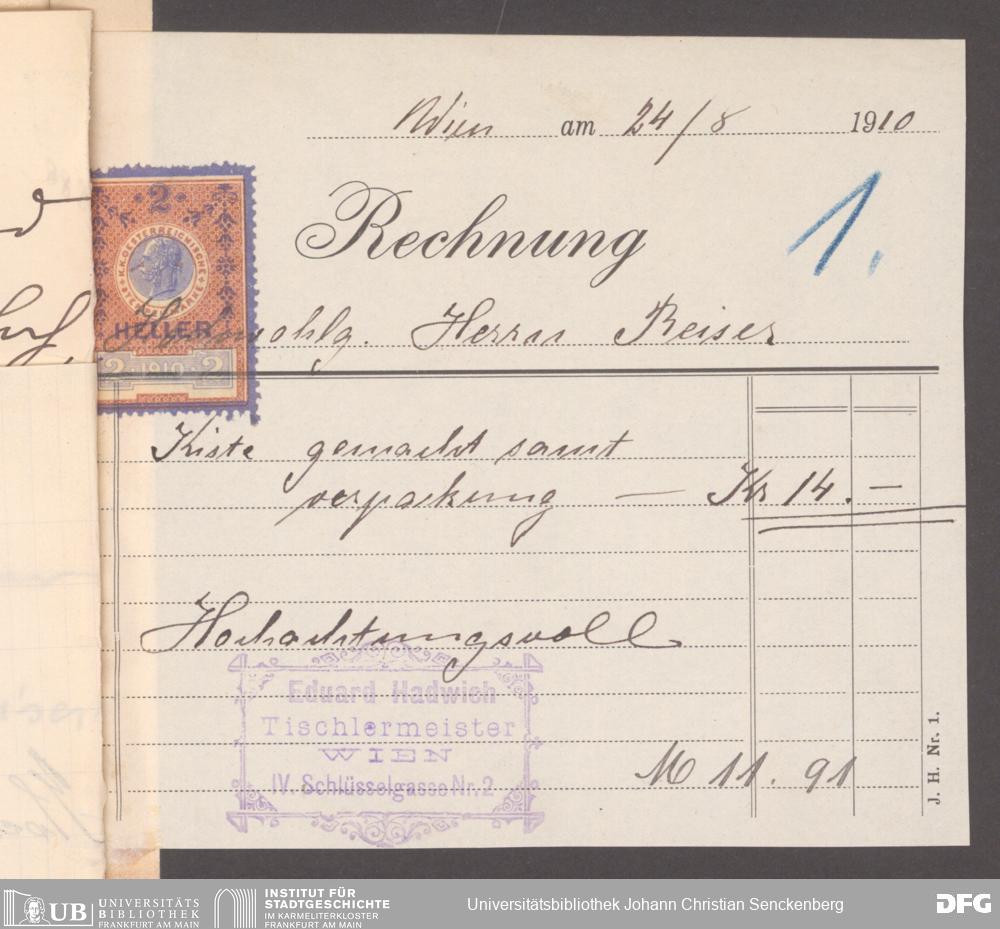 Wien am 24/8 1910
1.
Rechnung
2
K.K. OESTERREICHISCHE
HELLER
2 1910 2
Herrn Reiser
Kiste gemacht samt
verpackung — Kr 14. —
Hochachtungsvoll
Eduard Hadwich
Tischlermeister
WIEN
IV. Schlüsselgasse Nr. 2
M 11. 91
J. H. Nr. 1.
UB UNIVERSITÄTS
BIBLIOTHEK
FRANKFURT AM MAIN
INSTITUT FÜR
STADTGESCHICHTE
IM KARMELITERKLOSTER
FRANKFURT AM MAIN
Universitätsbibliothek Johann Christian Senckenberg
DFG